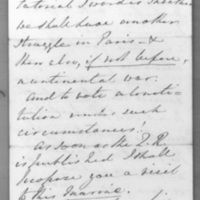 we shall have another
struggle in Paris &
then also, if not before,
a continental war.
And to vote a
under such
circumstances!
As soon as the Q. R.
is published I shall
propose you a visit
to this